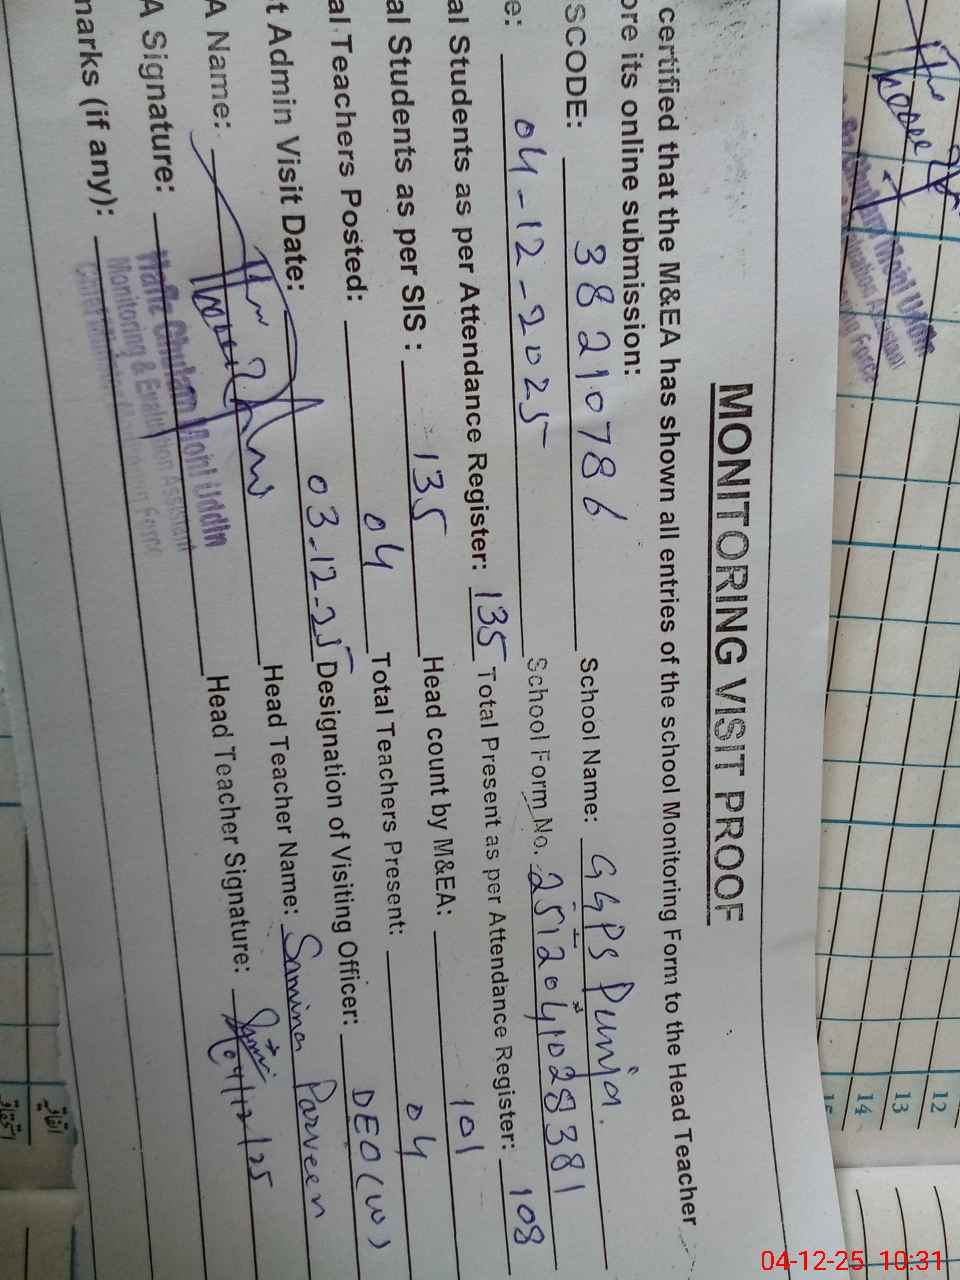 MONITORING VISIT PROOF
certified that the M&EA has shown all entries of the school Monitoring Form to the Head Teacher
ore its online submission:
SCODE: 38210786 School Name: GGPS Punja.
e: 04-12-2025 School Form No. 2512041028381
al Students as per Attendance Register: 135 Total Present as per Attendance Register: 108
al Students as per SIS : 135 Head count by M&EA: 101
al Teachers Posted: 04 Total Teachers Present: 04
t Admin Visit Date: 03-12-25 Designation of Visiting Officer: DEO(W)
A Name: Head Teacher Name: Samina Parveen
A Signature: Head Teacher Signature: 04/12/25
narks (if any):
Hafiz Ghulam Moin Uddin
Monitoring & Evaluation Assistant
Ghulam Moin Uddin
12
13
14
04-12-25 10:31